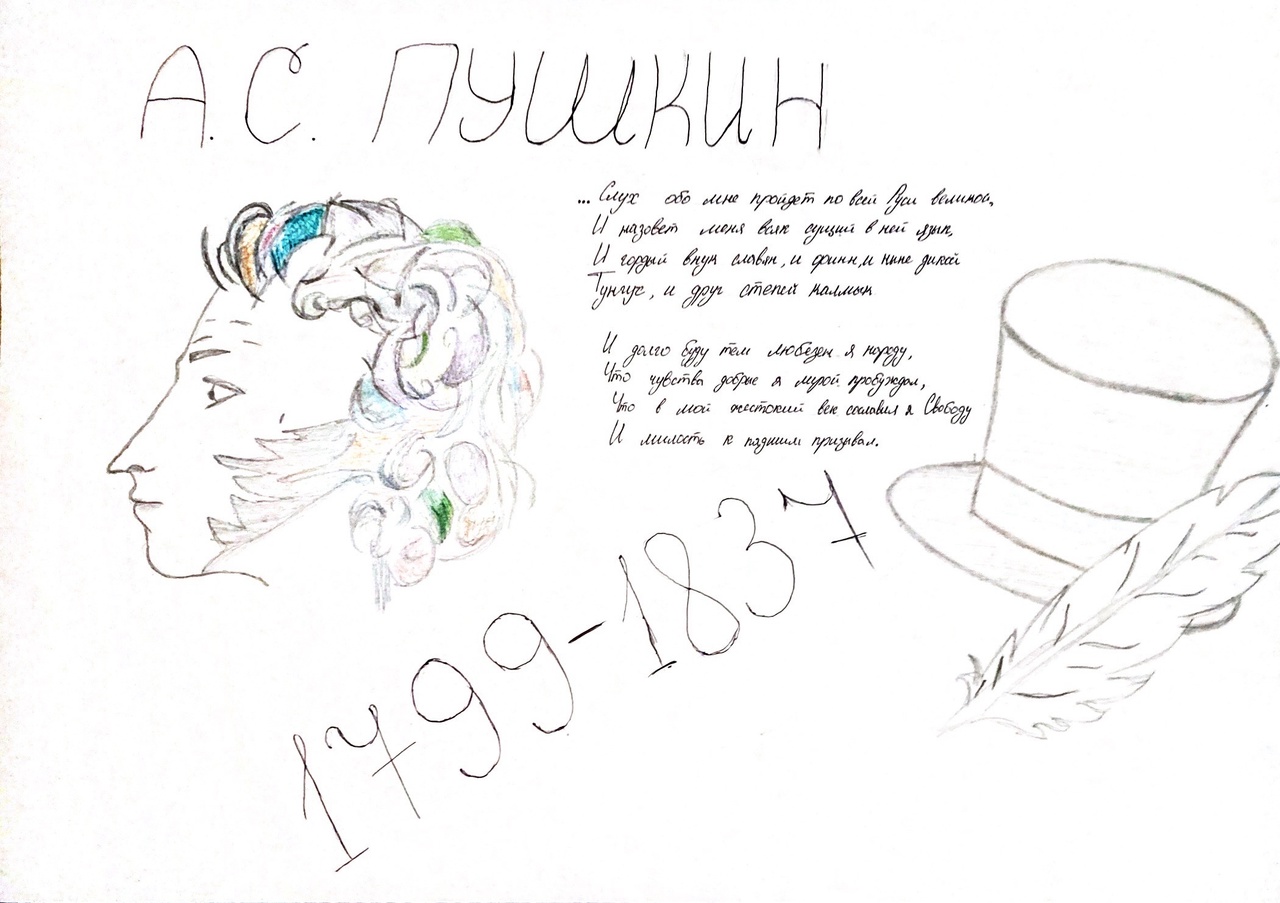 А. С. ПУШКИН
... Слух обо мне пройдет по всей Руси великой,
И назовет меня всяк сущий в ней язык,
И гордый внук славян, и финн, и ныне дикой
Тунгус, и друг степей калмык
И долго буду тем любезен я народу,
Что чувства добрые я лирой пробуждал,
Что в мой жестокий век восславил я Свободу
И милость к падшим призывал.
1799-1837